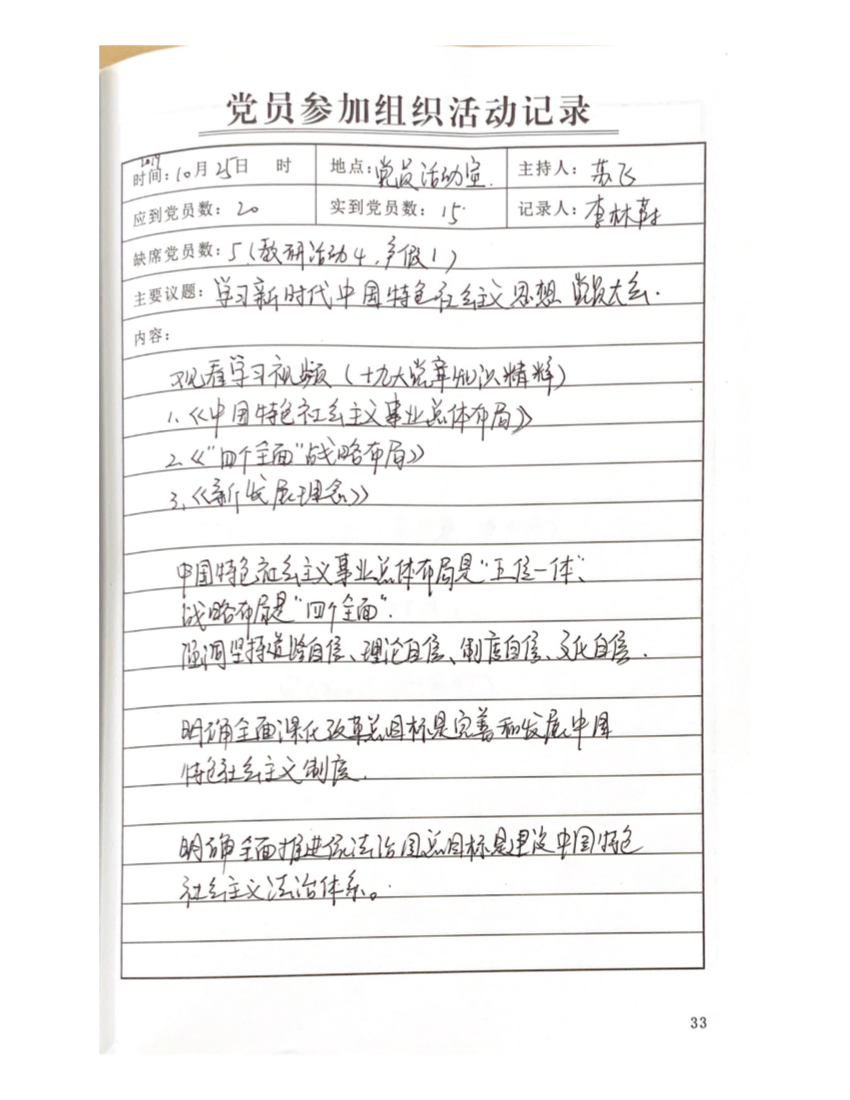 党员参加组织活动记录
2017
时间:10月25日 时 地点:党员活动室. 主持人:苏飞
应到党员数:20 实到党员数:15. 记录人:李林
缺席党员数:5(教研活动4,产假1)
主要议题:学习新时代中国特色社会主义思想 党员大会.
内容:
观看学习视频(十九大党章知识精粹)
1.《中国特色社会主义事业总体布局》
2.《"四个全面"战略布局》
3.《新发展理念》
中国特色社会主义事业总体布局是"五位一体"、
战略布局是"四个全面".
强调坚持道路自信、理论自信、制度自信、文化自信.
明确全面深化改革总目标是完善和发展中国
特色社会主义制度.
明确全面推进依法治国总目标是建设中国特色
社会主义法治体系。
33